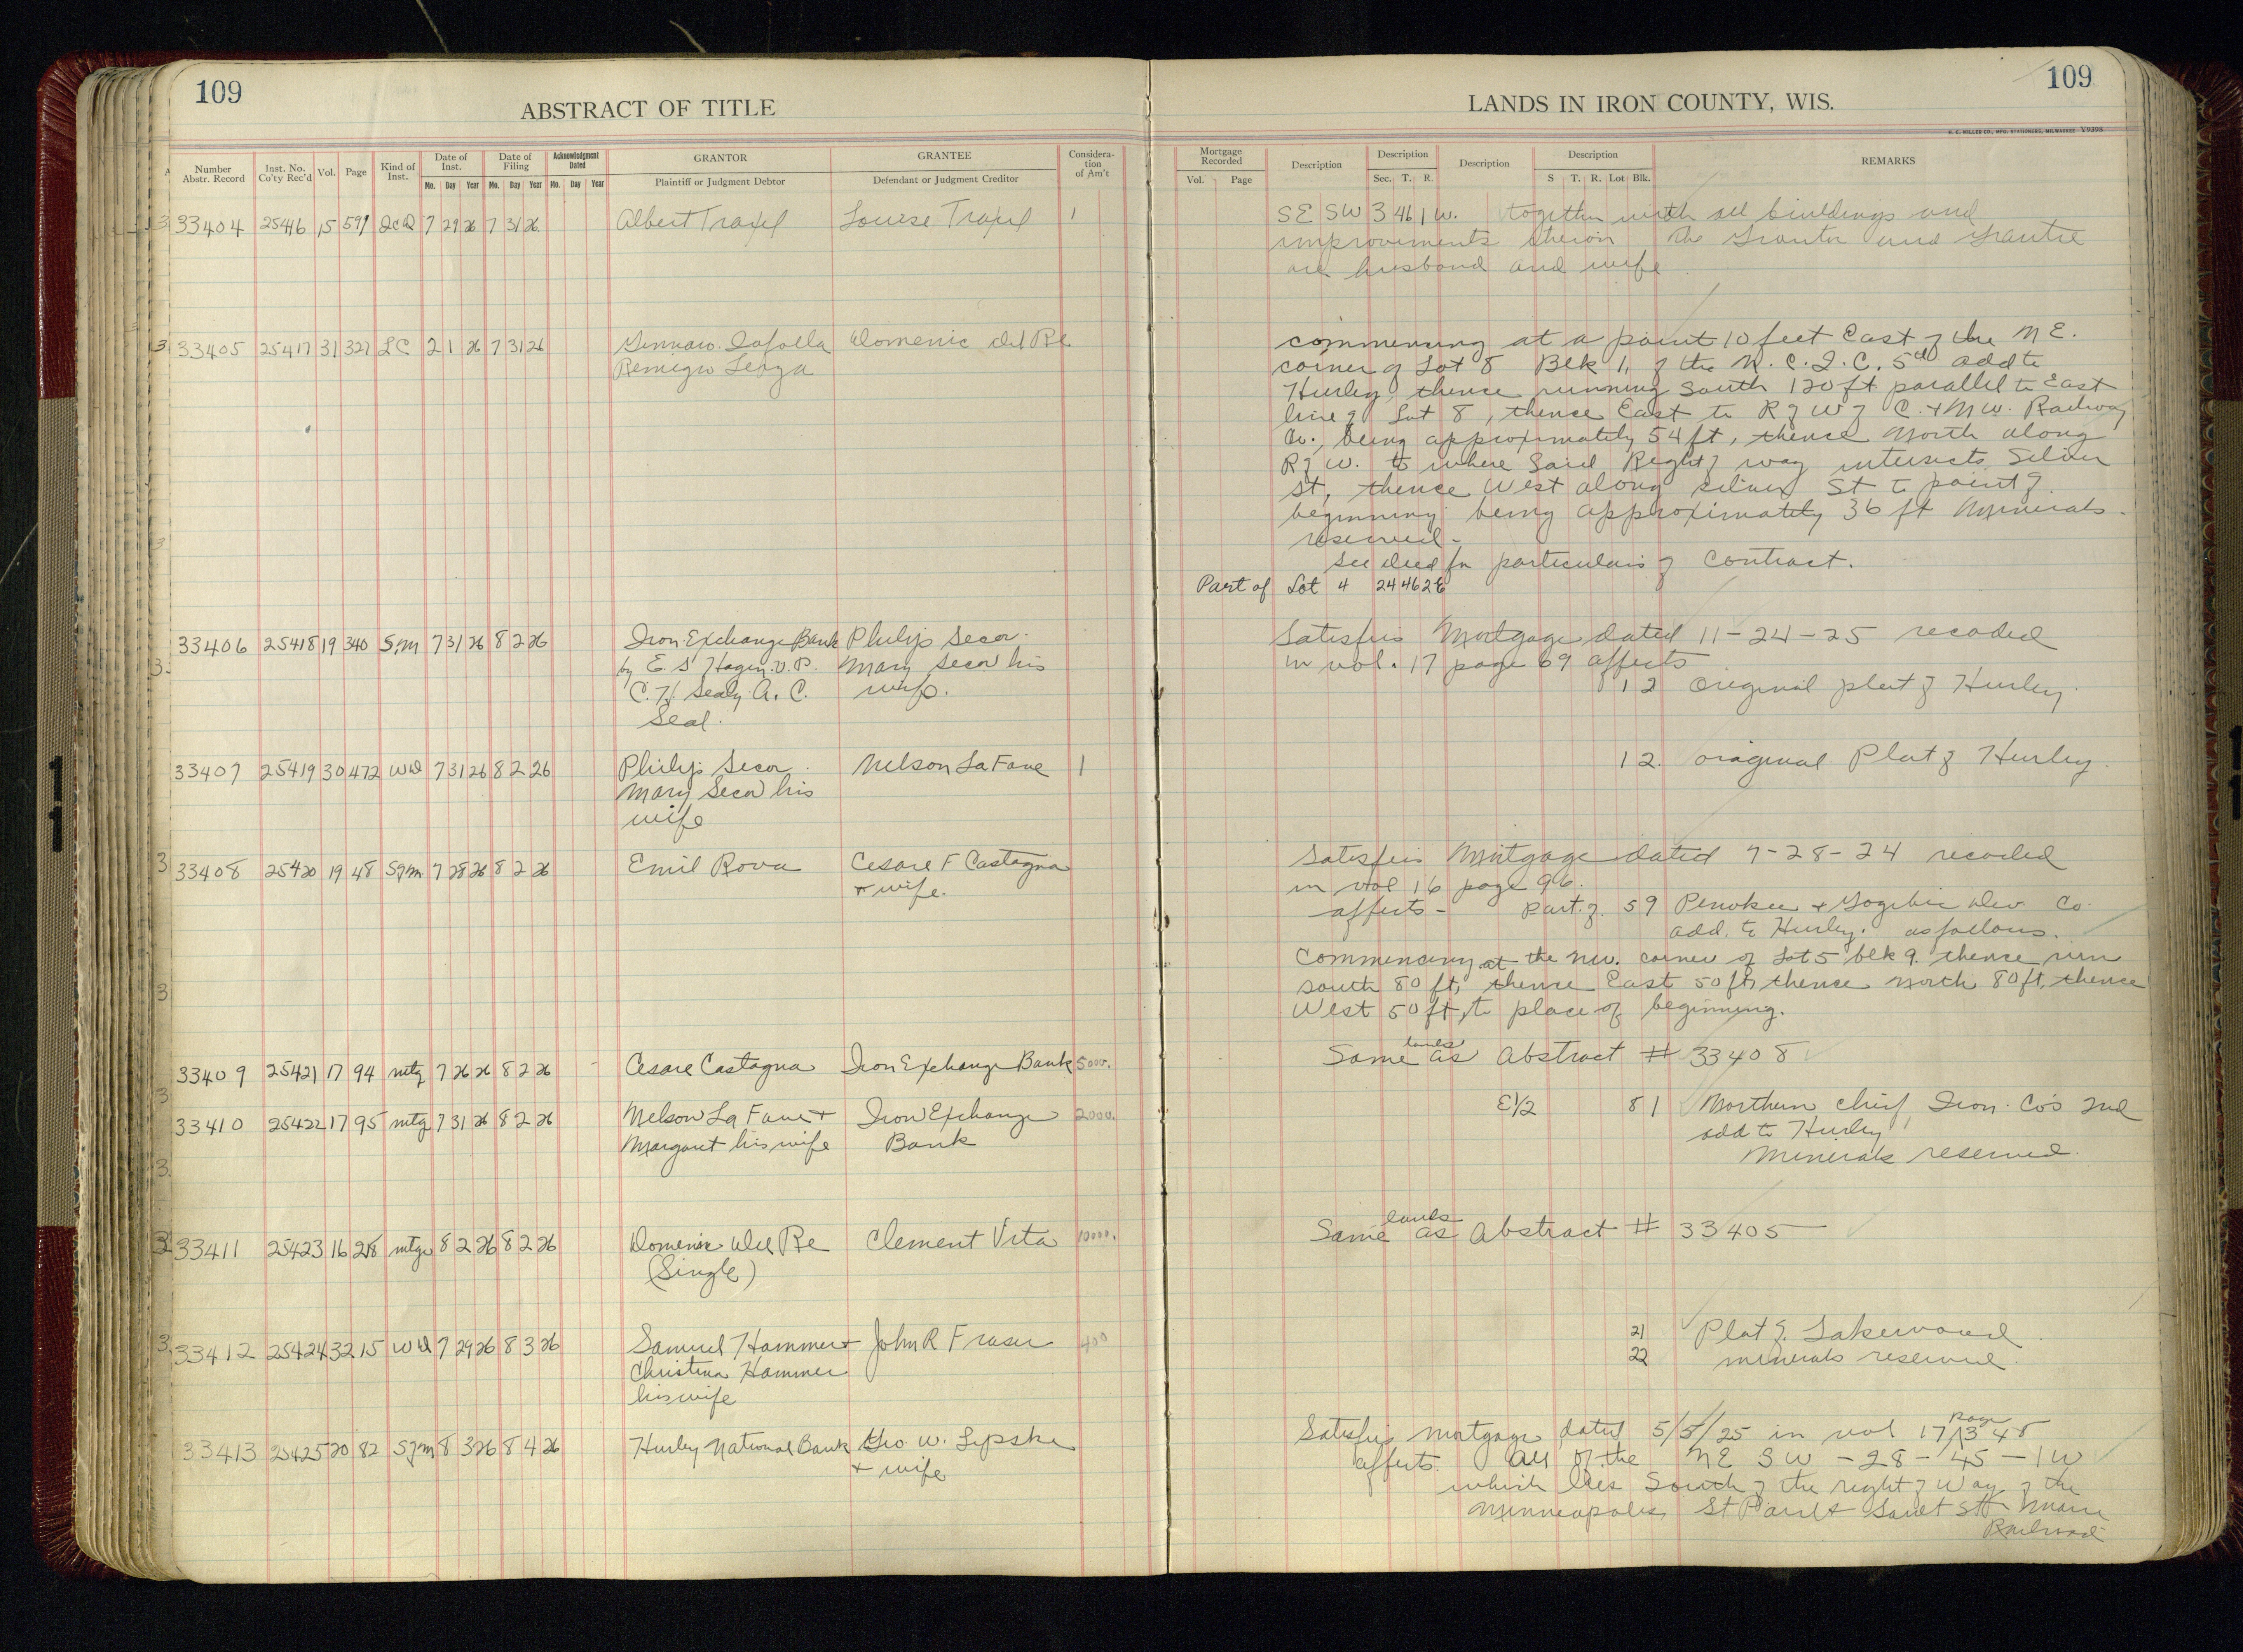 109
ABSTRACT OF TITLE
Number Abstr. Record
Inst. No. Co'ty Rec'd
Vol.
Page
Kind of Inst.
Date of Inst.
Mo. Day Year
Date of Filing
Mo. Day Year
Acknowledgment Dated
Mo. Day Year
GRANTOR
Plaintiff or Judgment Debtor
GRANTEE
Defendant or Judgment Creditor
Considera-tion of Am't
33404 25416 15 591 QCD 7 29 26 7 31 26 Albert Traxel Louise Traxel 1
33405 25417 31 327 LC 2 1 26 7 31 26 Domenic Del Re
Remigio
33406 25418 19 340 S/M 7 31 26 8 2 26 Iron Exchange Bank Philip Secor
by E. S. Hagen V. P. Mary Secor his
C. H. Sealy A. C. wife.
Seal.
33407 25419 30 472 WD 7 31 26 8 2 26 Philip Secor Nelson La Fave 1
Mary Secor his
wife
33408 25420 19 48 S/m 7 28 26 8 2 26 Emil Rova Cesare F Castagna
+ wife.
33409 25421 17 94 mtg 7 26 26 8 2 26 Cesare Castagna Iron Exchange Bank 5000.
33410 25422 17 95 mtg 7 31 26 8 2 26 Nelson La Fave + Iron Exchange 2000.
Margaret his wife Bank
33411 25423 16 218 mtge 8 2 26 8 2 26 Domenic Del Re Clement Vita 10000.
(Single)
33412 25424 32 15 WD 7 29 26 8 3 26 Samuel Hammer + John R Fraser 400
Christina Hammer
his wife
33413 25425 20 82 S/m 8 3 26 8 4 26 Hurley National Bank Geo. W. Lipske
+ wife
109
LANDS IN IRON COUNTY, WIS.
H. C. MILLER CO., MFG. STATIONERS, MILWAUKEE Y9398
Mortgage Recorded
Vol. Page
Description
Description
Sec. T. R.
Description
Description
S T. R. Lot Blk.
REMARKS
SE SW 3 46 1 W. together with all buildings and
improvements thereon The Grantor and Grantee
are husband and wife
commencing at a point 10 feet East of the N E.
corner of Lot 8 Blk 1, of the N. C. I. C. 5th add to
Hurley, thence running South 120 ft parallel to East
line of Lot 8, thence East to R of W of C. + N W. Railway
Co., being approximately 54 ft, thence North along
R of W. to where said Right of way intersects Silver
St, thence West along Silver St to point of
beginning being approximately 36 ft Minerals
reserved -
See deed for particulars of Contract.
Part of Lot 4 24 46 2E
Satisfies Mortgage dated 11-24-25 recoded
in vol. 17 page 69 affects
1 2 Original plat of Hurley.
1 2. original Plat of Hurley.
Satisfies Mortgage dated 7-28-24 recoded
in vol 16 page 96.
affects - Part of 5 9 Penokee + Gogebic Dev Co
add. to Hurley. as follows.
Commencing at the nw. corner of Lot 5 blk 9. thence run
south 80 ft, thence East 50 ft, thence north 80 ft, thence
West 50 ft, to place of beginning.
Same lands as Abstract # 33408
E1/2 8 1 Northern Chief Iron Co's 2nd
add to Hurley
Minerals reserved.
Same lands as Abstract # 33405
21 Plat of Lakewood
22 minerals reserved.
Satisfies Mortgage dated 5/5/25 in vol 17 page 348
affects. All of the NE SW - 28 - 45 - 1 W
which lies South of the right of Way of the
Minneapolis, St Paul + Sault Ste Marie
Railroad